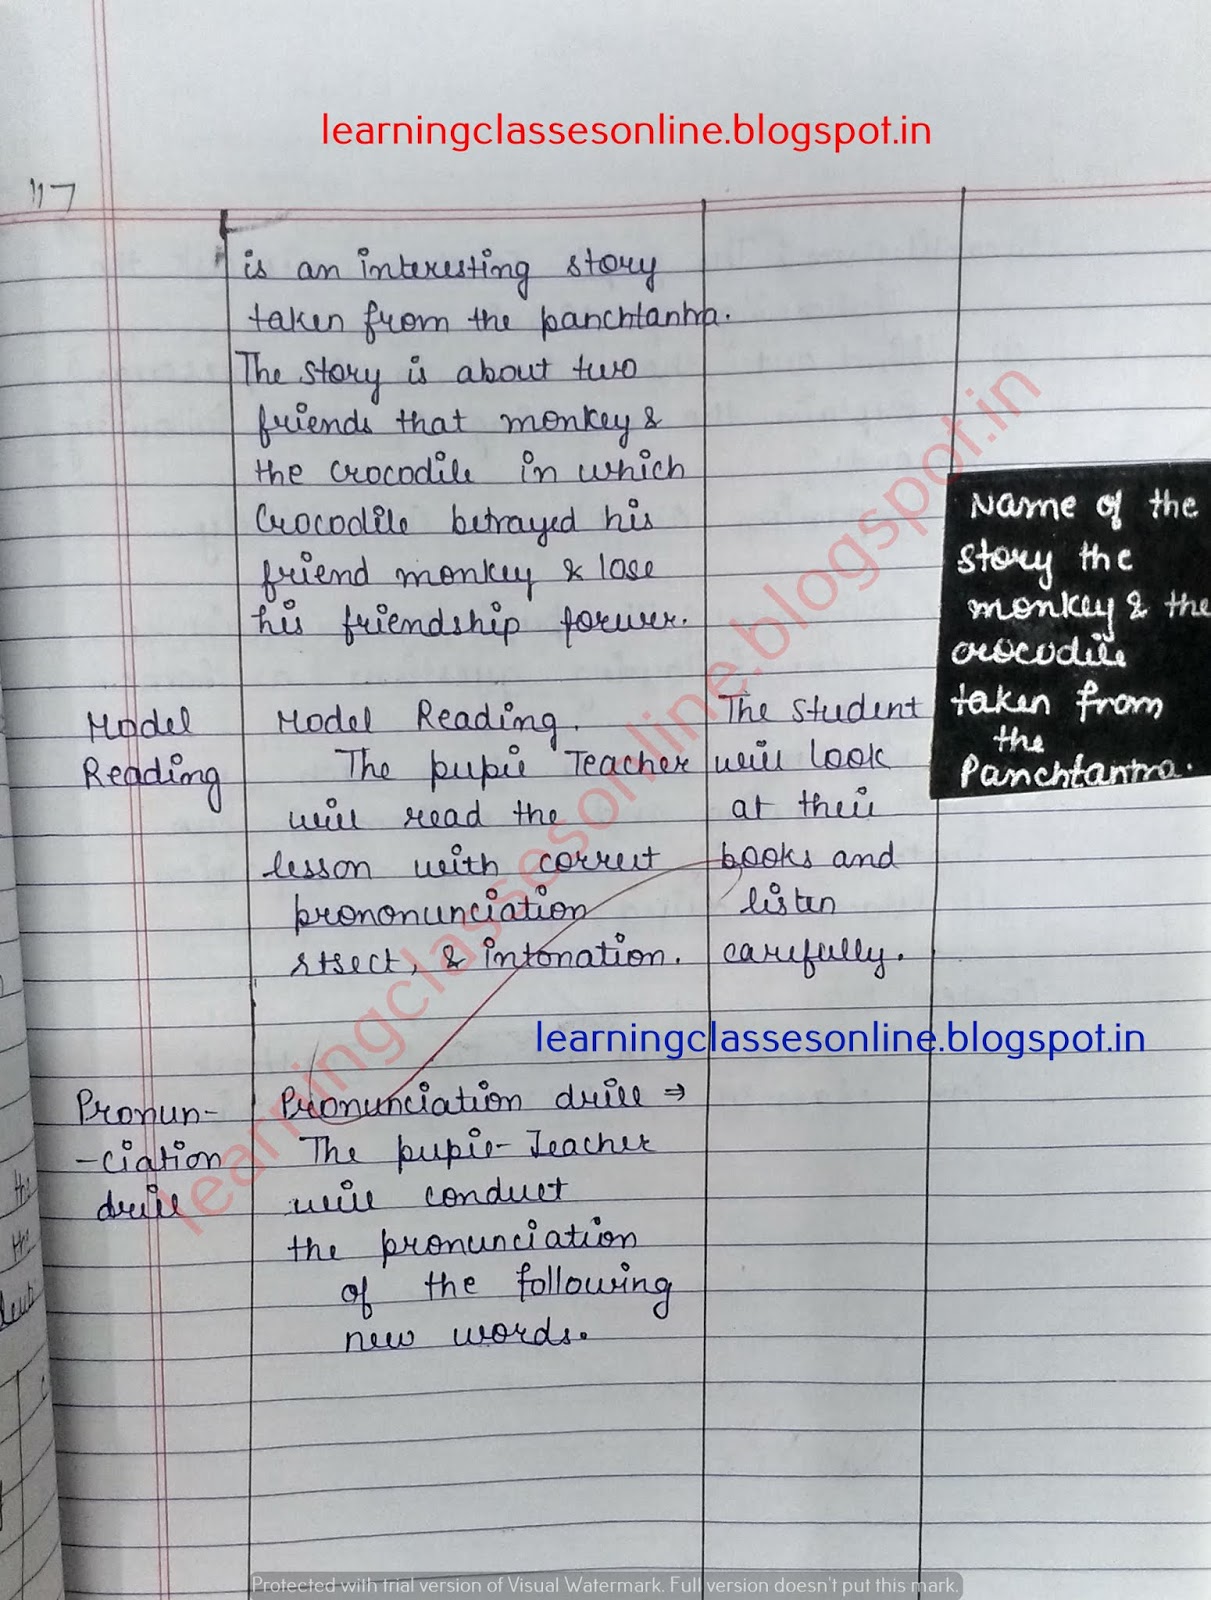 learningclassesonline.blogspot.in
117
is an interesting story
taken from the panchtantra.
The story is about two
friends that monkey &
the crocodile in which
Crocodile betrayed his
friend monkey & lose
his friendship forever.
Name of the
story the
monkey & the
crocodile
taken from
the
Panchtantra.
Model
Reading
Model Reading.
The pupil Teacher
will read the
lesson with correct
prononunciation
stsect, & intonation.
The student
will look
at their
books and
listen
carefully.
learningclassesonline.blogspot.in
learningclassesonline.blogspot.in
Pronun-
-ciation
drill
Pronunciation drill ⇒
The pupil-Teacher
will conduct
the pronunciation
of the following
new words.
Protected with trial version of Visual Watermark. Full version doesn't put this mark.